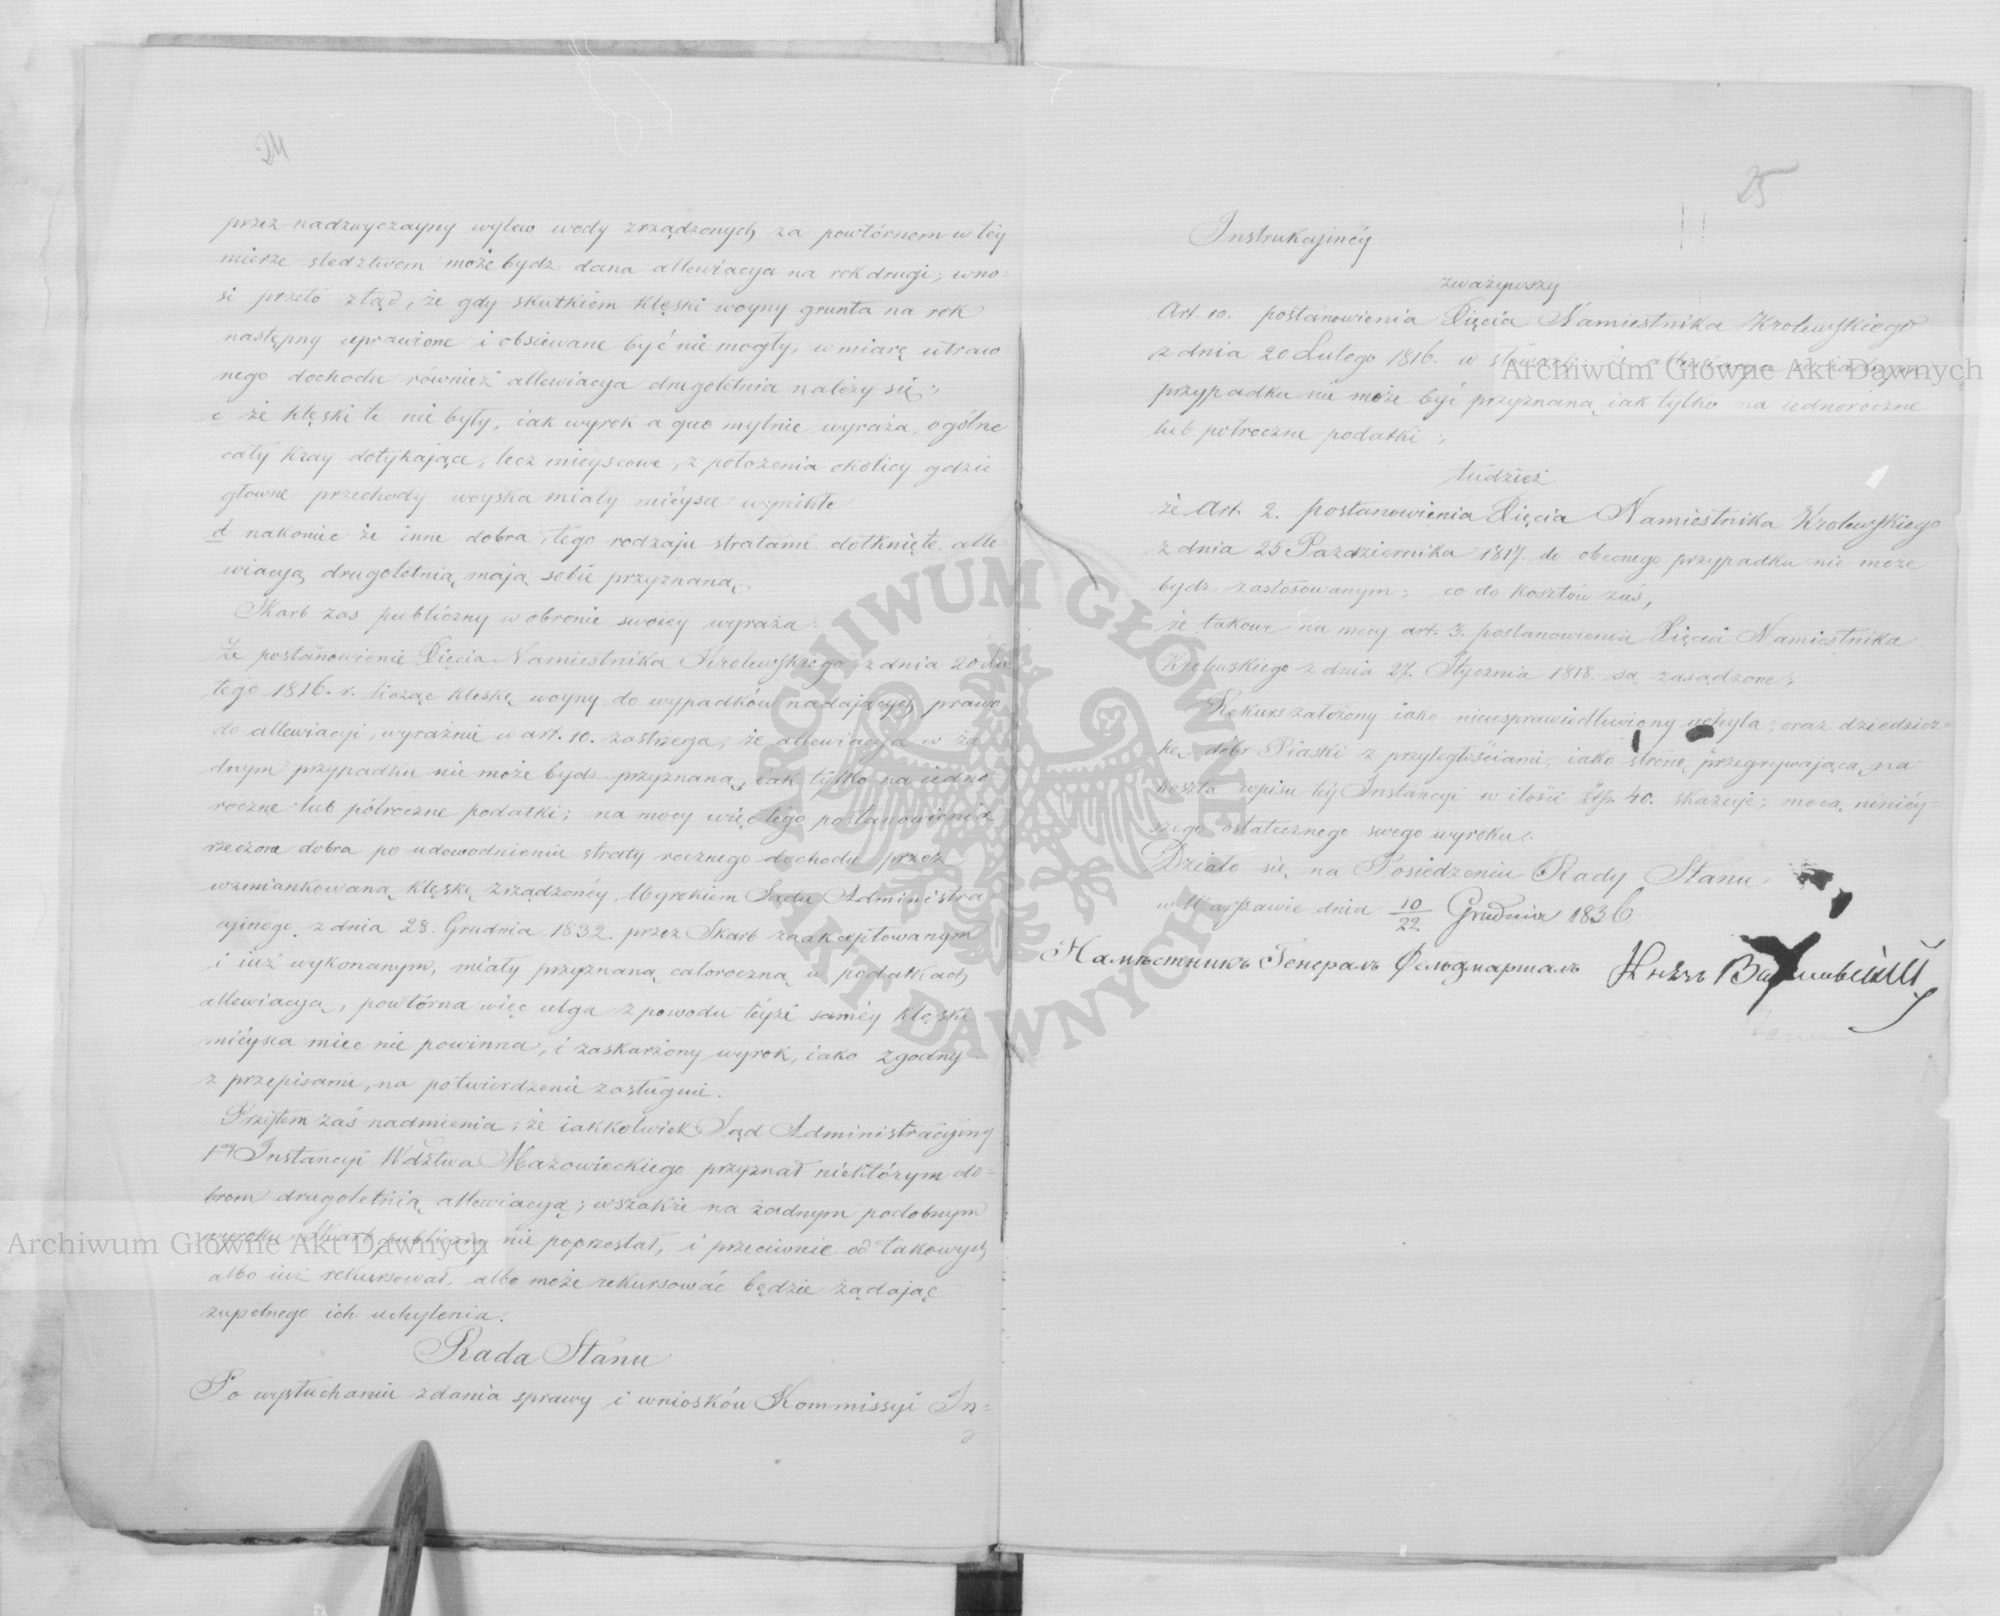 24
przez nadzwyczayny wylew wody zrządzonych za powtórnem w téy
mierze śledztwem może bydz dana allewiacya na rok drugi; wno-
si przeto ztąd, że gdy skutkiem klęski woyny grunta na rok
następny uprawione i obsiewane być nie mogły, w miarę utraco
nego dochodu również allewiacya drugoletnia należy się;
c że klęski te nie były, iak wyrok a quo mylnie wyraża, ogólne
cały Kray dotykające, lecz mieyscowe, z położenia okolicy gdzie
głowne przechody woyska miały mieysce wynikłe
d nakoniec że inne dobra, tego rodzaju stratami dotknięte, alle
wiacyą drugoletnią mają sobie przyznaną.
Skarb zas publiczny w obronie swoiey wyraża:
Że postanowienie Xięcia Namiestnika Krolewskiego z dnia 20 Lu
tego 1816. r. licząc klęskę woyny do wypadków nadających prawo
do allewiacyi, wyraźnie w art. 10. zastrzega, że allewiacya w ża
dnym przypadku nie może bydz przyznaną, iak tylko na iedno-
roczne lub półroczne podatki; na mocy więc tego postanowienia
rzeczone dobra po udowodnieniu straty rocznego dochodu przez
wzmiankowaną klęskę zrządzoney, Wyrokiem Sądu Administra
cyinego z dnia 28. Grudnia 1832. przez Skarb zaakceptowanym
i iuż wykonanym, miały przyznaną całoroczną w podatkach
allewiacyą, powtórna więc ulga z powodu teyże saméy klęski
mieysca mieć nie powinna, i zaskarżony wyrok, iako zgodny
z przepisami, na potwierdzenie zasługuie.
Przytem zaś nadmienia, że iakkolwiek Sąd Administracyiny
1ey Instancyi Wdztwa Mazowieckiego przyznał niektórym do-
brom drugoletnią allewiacyą; wszakże na żadnym podobnym
wyroku Skarb publiczny nie poprzestał, i przeciwnie od takowych
albo iuż rekursował, albo może rekursować będzie żądając
zupełnego ich uchylenia.
Rada Stanu
Po wysłuchaniu zdania sprawy i wniosków Kommissyi In=
25
Instrukcyinéy
zważywszy
Art. 10. postanowienia Xięcia Namiestnika Krolewskiego
z dnia 20 Lutego 1816. w że allewiacya w żadnym
przypadku nie może być przyznaną iak tylko na iednoroczne
lub półroczne podatki;
tudzież
że Art. 2. postanowienia Xięcia Namiestnika Krolewskiego
z dnia 25 Października 1817. do obecnego przypadku nie może
bydz zastosowanym; co do kosztów zaś,
że takowe na mocy art. 3. postanowienia Xięcia Namiestnika
Krolewskiego z dnia 27. Stycznia 1818 są zasądzone;
Rekurs założony iako nieusprawiedliwiony uchyla; oraz dziedzicz-
kę dóbr Piaski z przyległościami, iako stronę przegrywającą na
koszta wpisu téj Instancyi w ilości Złp. 40. skazuje; mocą niniéy-
szego ostatecznego swego wyroku.
Działo się na Posiedzeniu Rady Stanu
w Warszawie dnia 10/22 Grudnia 1836.
Намѣстникъ Генералъ Фельдмаршалъ Князь Варшавскій
Archiwum Główne Akt Dawnych
Archiwum Główne Akt Dawnych
ARCHIWUM GŁÓWNE AKT DAWNYCH